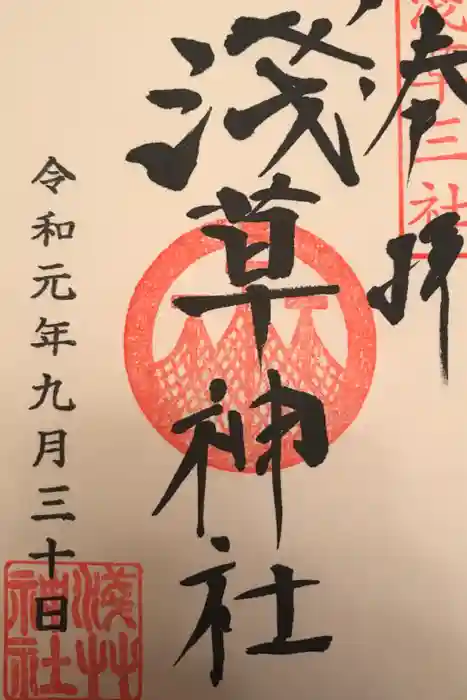 奉拝
浅草三社
淺草神社
令和元年九月三十日
淺草神社